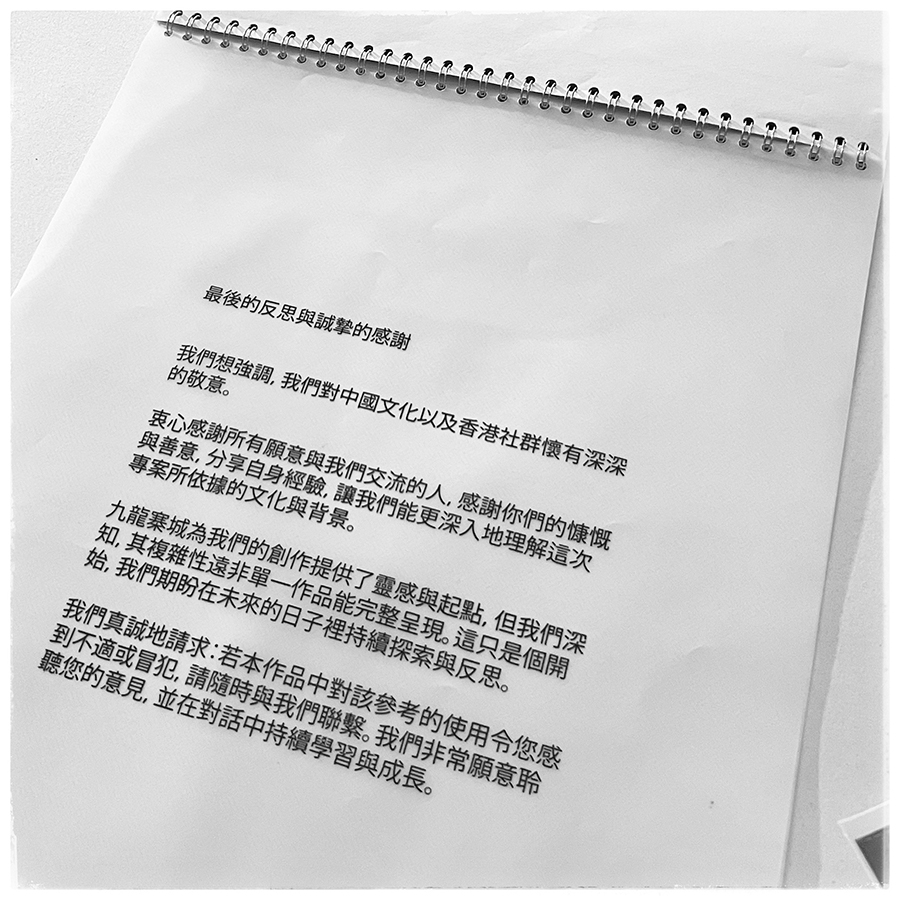 最後的反思與誠摯的感謝
我們想強調, 我們對中國文化以及香港社群懷有深深
的敬意。
衷心感謝所有願意與我們交流的人, 感謝你們的慷慨
與善意, 分享自身經驗, 讓我們能更深入地理解這次
專案所依據的文化與背景。
九龍寨城為我們的創作提供了靈感與起點, 但我們深
知, 其複雜性遠非單一作品能完整呈現。這只是個開
始, 我們期盼在未來的日子裡持續探索與反思。
我們真誠地請求：若本作品中對該參考的使用令您感
到不適或冒犯, 請隨時與我們聯繫。我們非常願意聆
聽您的意見, 並在對話中持續學習與成長。